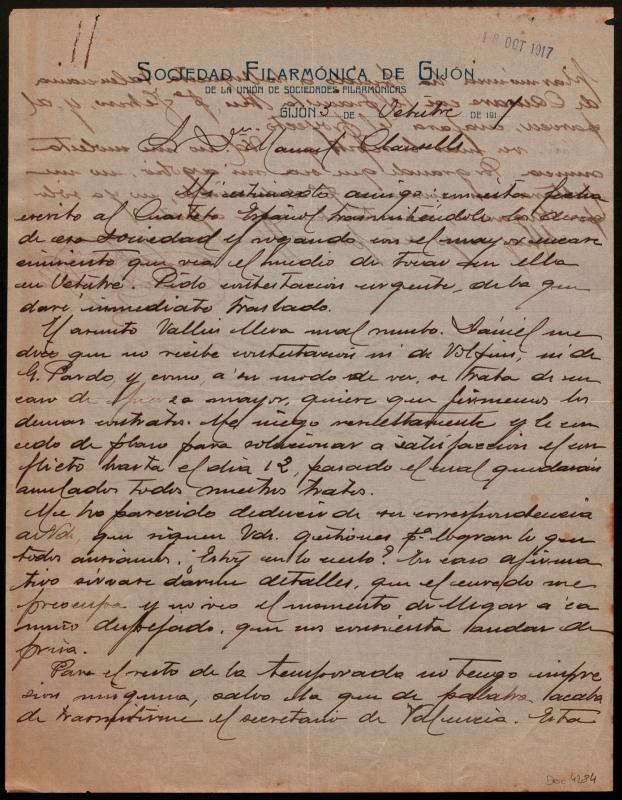 11
18 OCT 1917
SOCIEDAD FILARMÓNICA DE GIJÓN
DE LA UNIÓN DE SOCIEDADES FILARMÓNICAS
GIJÓN 3 DE Octubre DE 1917
Sr. Dn. Manuel Clausells
Mi estimado amigo: en esta fecha
escribo al Cuarteto Español transmitiéndole los deseos
de esa sociedad y rogando con el mayor encare
cimiento que vea el medio de tocar en ella
en Octubre. Pido contestación urgente, de la que
daré inmediato traslado.
El asunto Vallin lleva mal rumbo. Dániel me
dice que no recibe contestación ni de Volfini, ni de
G. Pardo, y como, a su modo de ver, se trata de un
caso de fuerza mayor, quiere que firmemos los
demas contratos. Me niego resueltamente y le con
cedo de plazo para solucionar a satisfacción el con
flicto hasta el día 12, pasado el cual quedarán
anulados todos nuestros tratos.
Me ha parecido deducir de su correspondencia
de Vd. que siguen Vds. gestiones pa. lograr lo que
todos ansiamos. ¿Estoy en lo cierto? En caso afirma
tivo sírvase darme detalles, que el enredo me
preocupa y no veo el momento de llegar a ca
mino despejado, que nos consienta andar de
prisa.
Para el resto de la temporada no tengo impre
sión ninguna, salvo la que de palabra acaba
de transmitirme el secretario de Valencia. Esta
Doc 4284